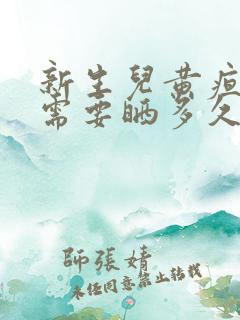 新生兒黃疸
需要晒多久
師張婧
未任同意禁止转载